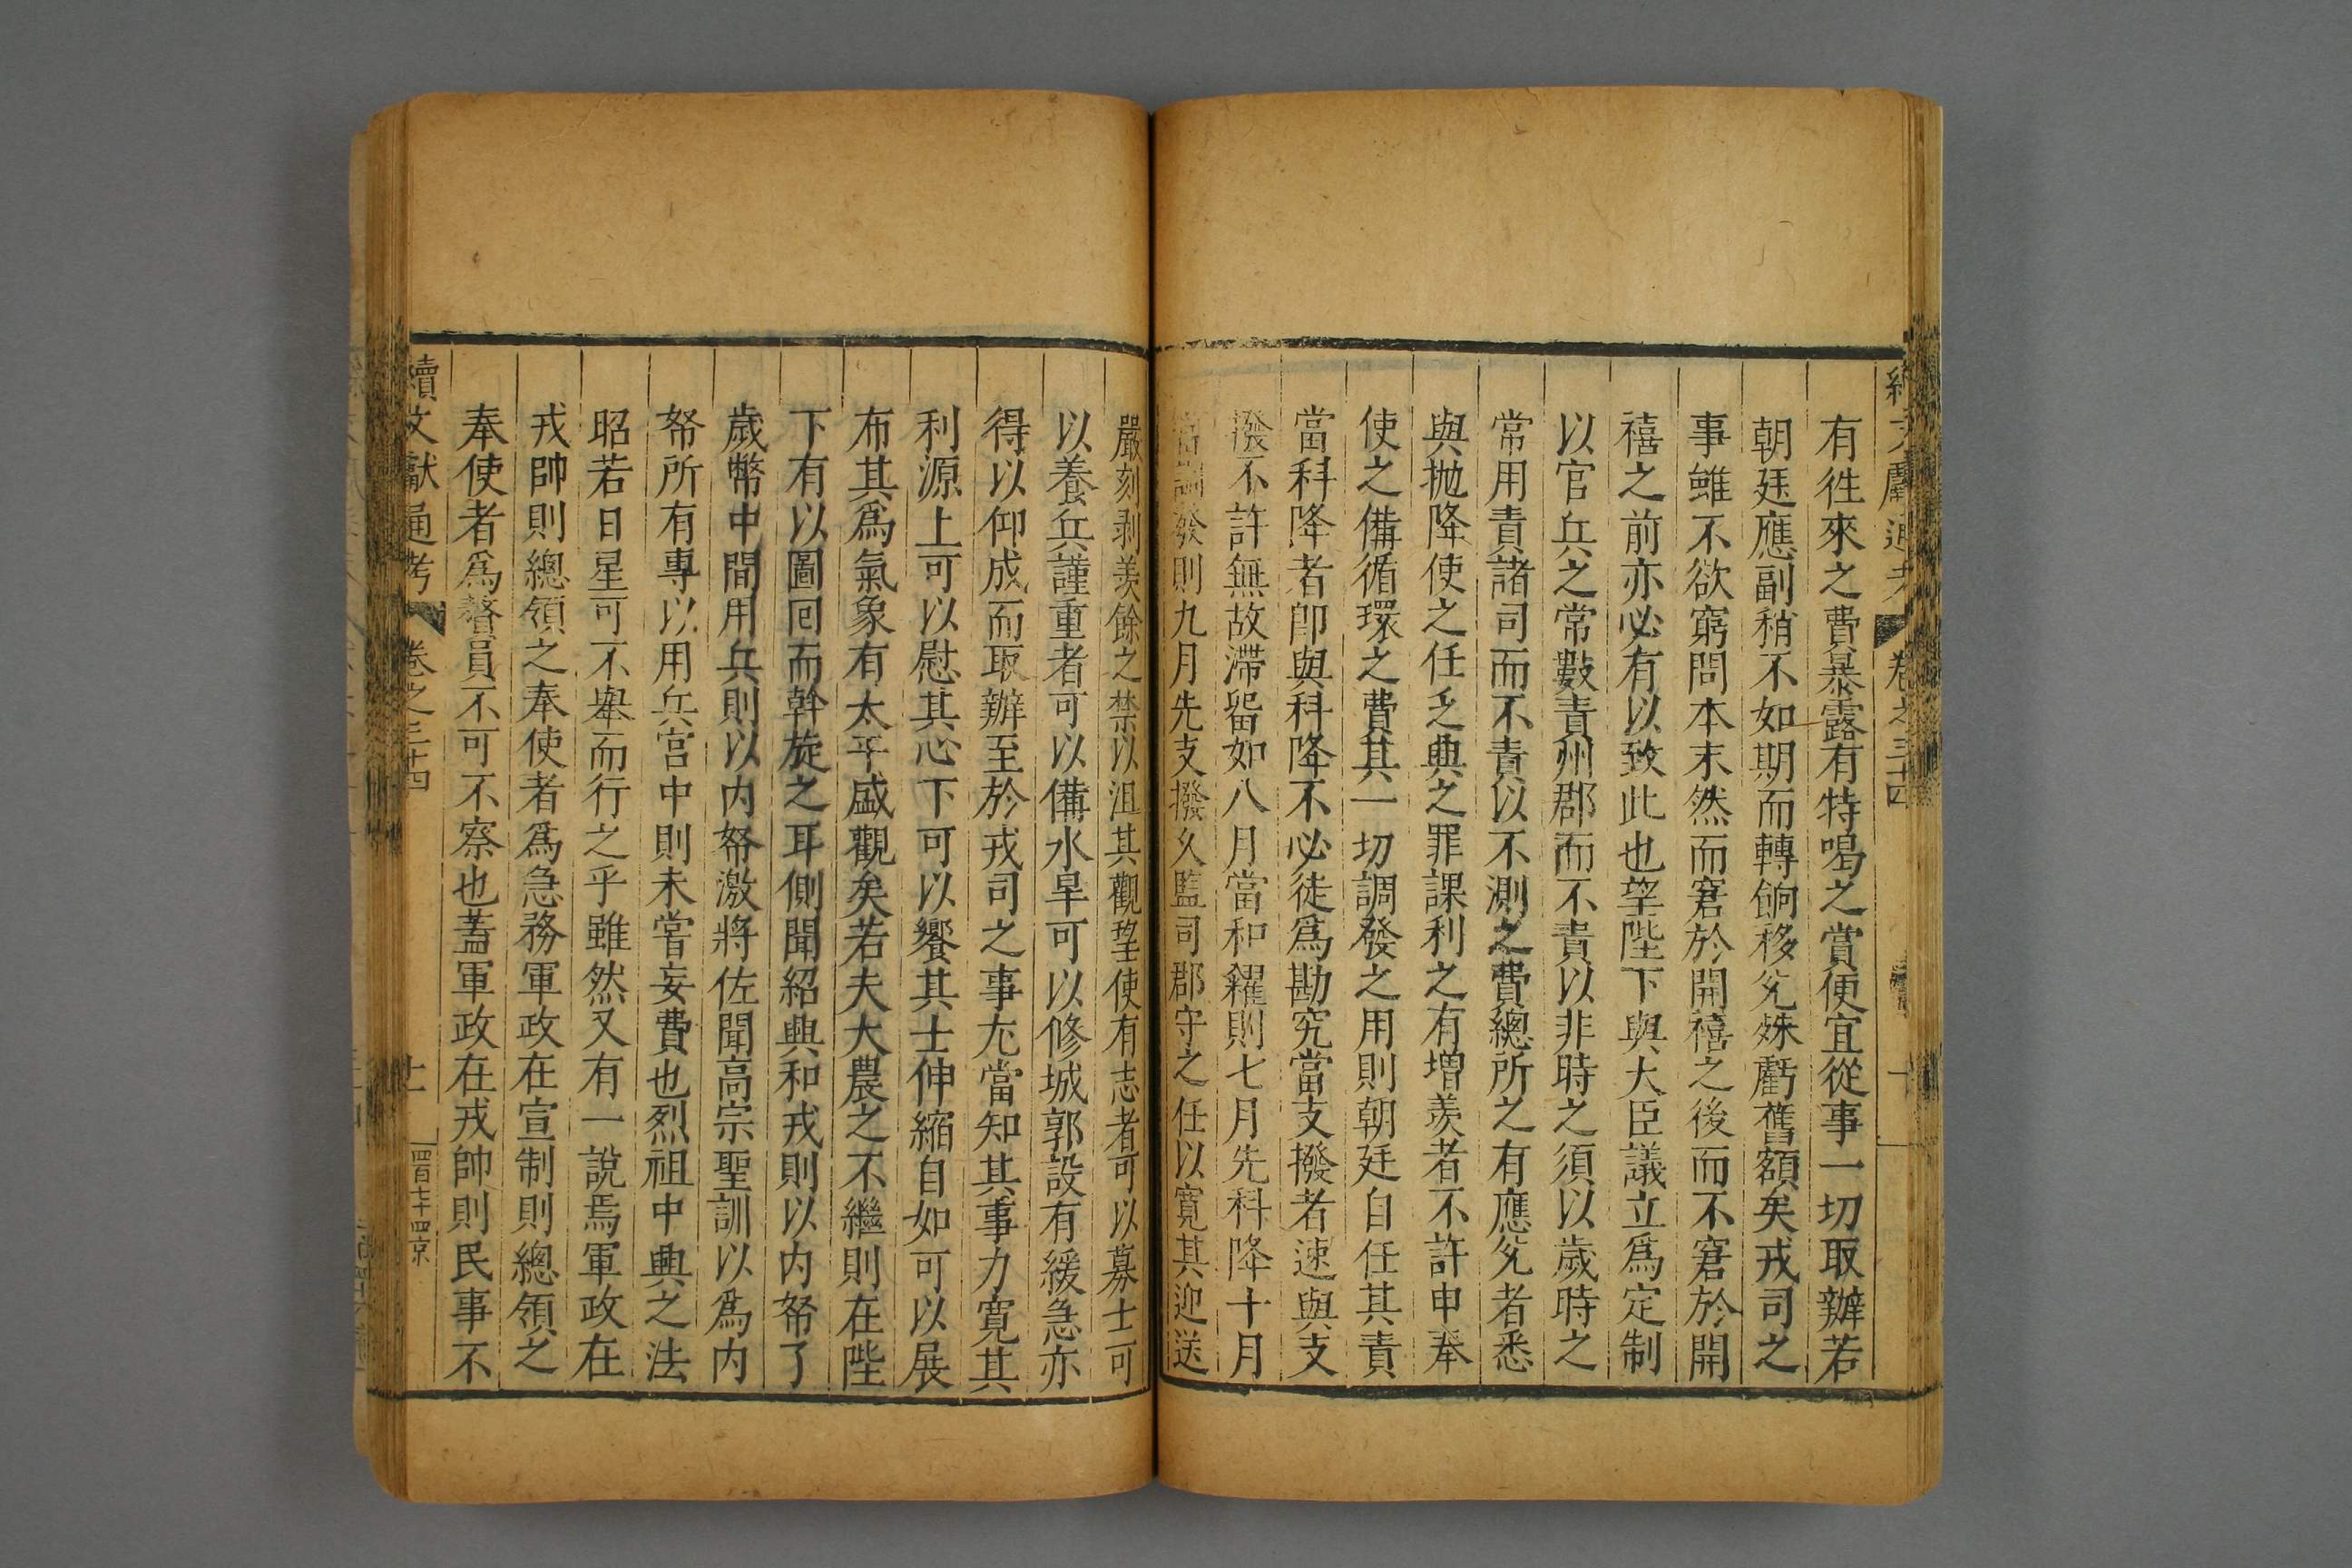 續文獻通考 卷之三十四 十
有徃來之費暴露有特喝之賞便宜從事一切取辦若
朝廷應副稍不如期而轉餉移兊殊虧舊額矣戎司之
事雖不欲窮問本末然而窘於開禧之後而不窘於開
禧之前亦必有以致此也望陛下與大臣議立爲定制
以官兵之常數責州郡而不責以非時之須以歲時之
常用責諸司而不責以不測之費總所之有應兊者悉
與抛降使之任乏典之罪課利之有增羨者不許申奉
使之備循環之費其一切調發之用則朝廷自任其責
當科降者卽與科降不必徒爲勘究當支撥者速與支
潑不許無故滯畱如八月當和糴則七月先科降十月
當調發則九月先支撥久監司郡守之任以寬其迎送
嚴刻剥羨餘之禁以沮其觀望使有志者可以募士可
以養兵謹重者可以備水旱可以修城郭設有緩急亦
得以仰成而取辦至於戎司之事尤當知其事力寛其
利源上可以慰其心下可以饗其士伸縮自如可以展
布其爲氣象有太平盛觀矣若夫大農之不繼則在陛
下有以圖囘而斡旋之耳側聞紹興和戎則以内帑了
歲幣中間用兵則以内帑激將佐聞高宗聖訓以爲内
帑所有專以用兵宫中則未嘗妄費也烈祖中興之法
昭若日星可不舉而行之乎雖然又有一說焉軍政在
戎帥則總領之奉使者爲急務軍政在宣制則總領之
奉使者爲贅員不可不察也蓋軍政在戎帥則民事不
續文獻通考 卷之三十四 十一 四百七十四京